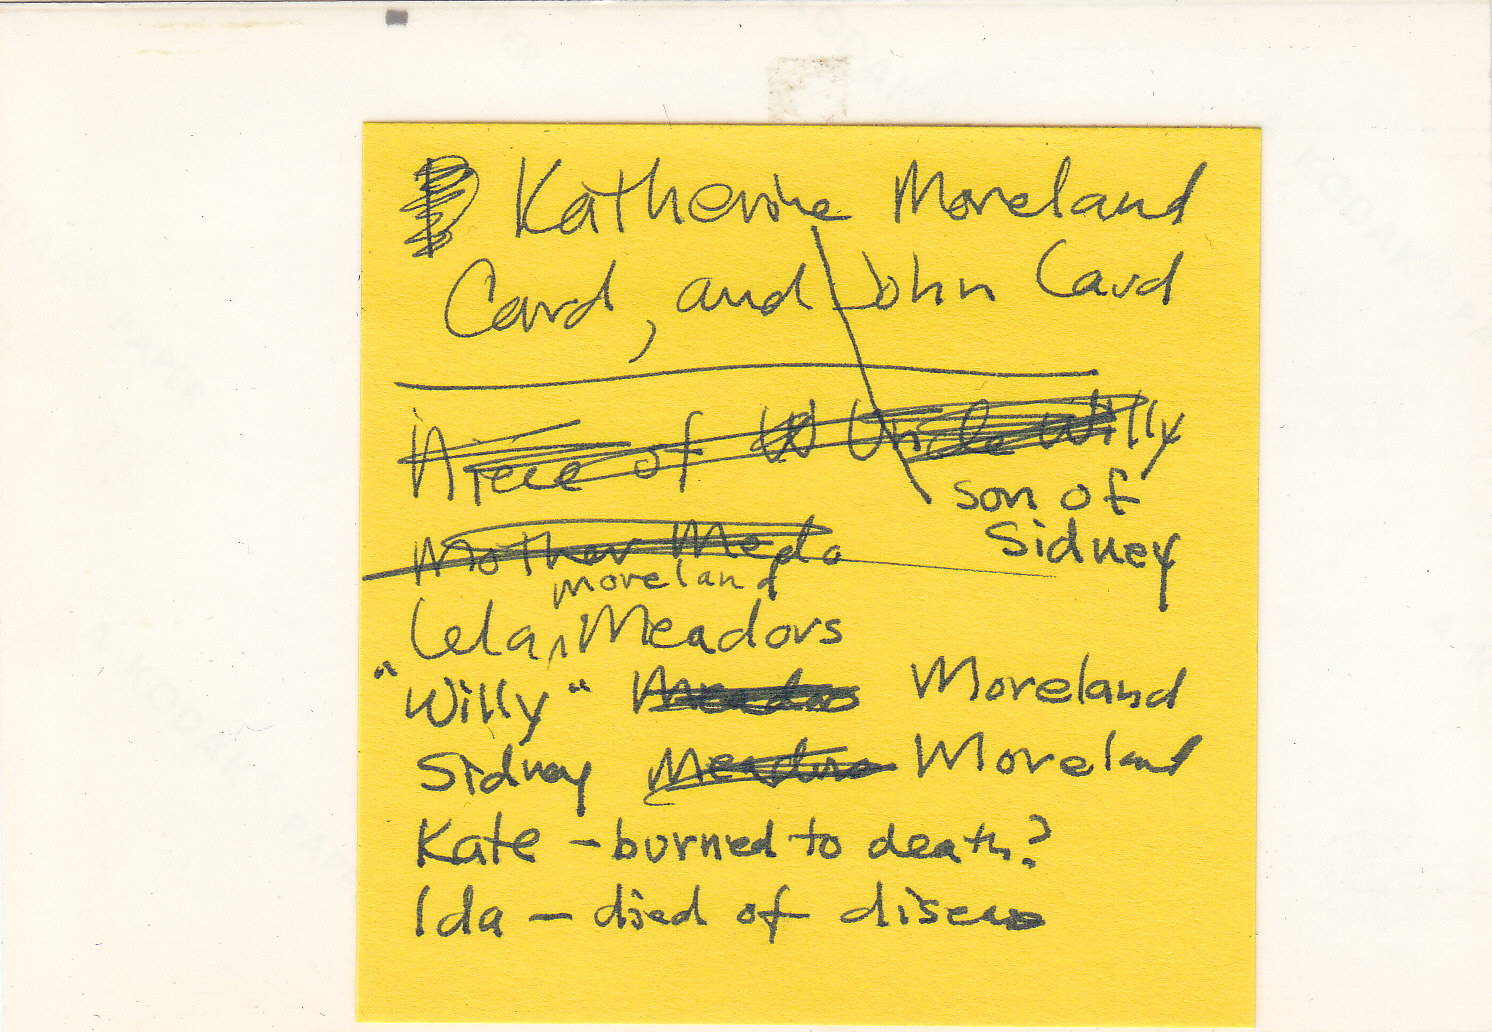 Katherine Moreland
Card, and John Card
Niece of Uncle Willy
son of
Sidney
Mother Meda
moreland
Lela ^ Meadors
"Willy" Meadors Moreland
Sidney Meadors Moreland
Kate – burned to death?
Ida – died of disease
KODAK
PAPER